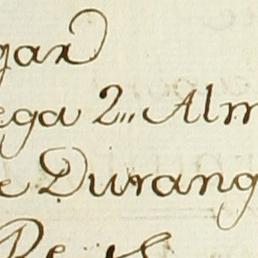 gar
ega 2... Alm
e Durang